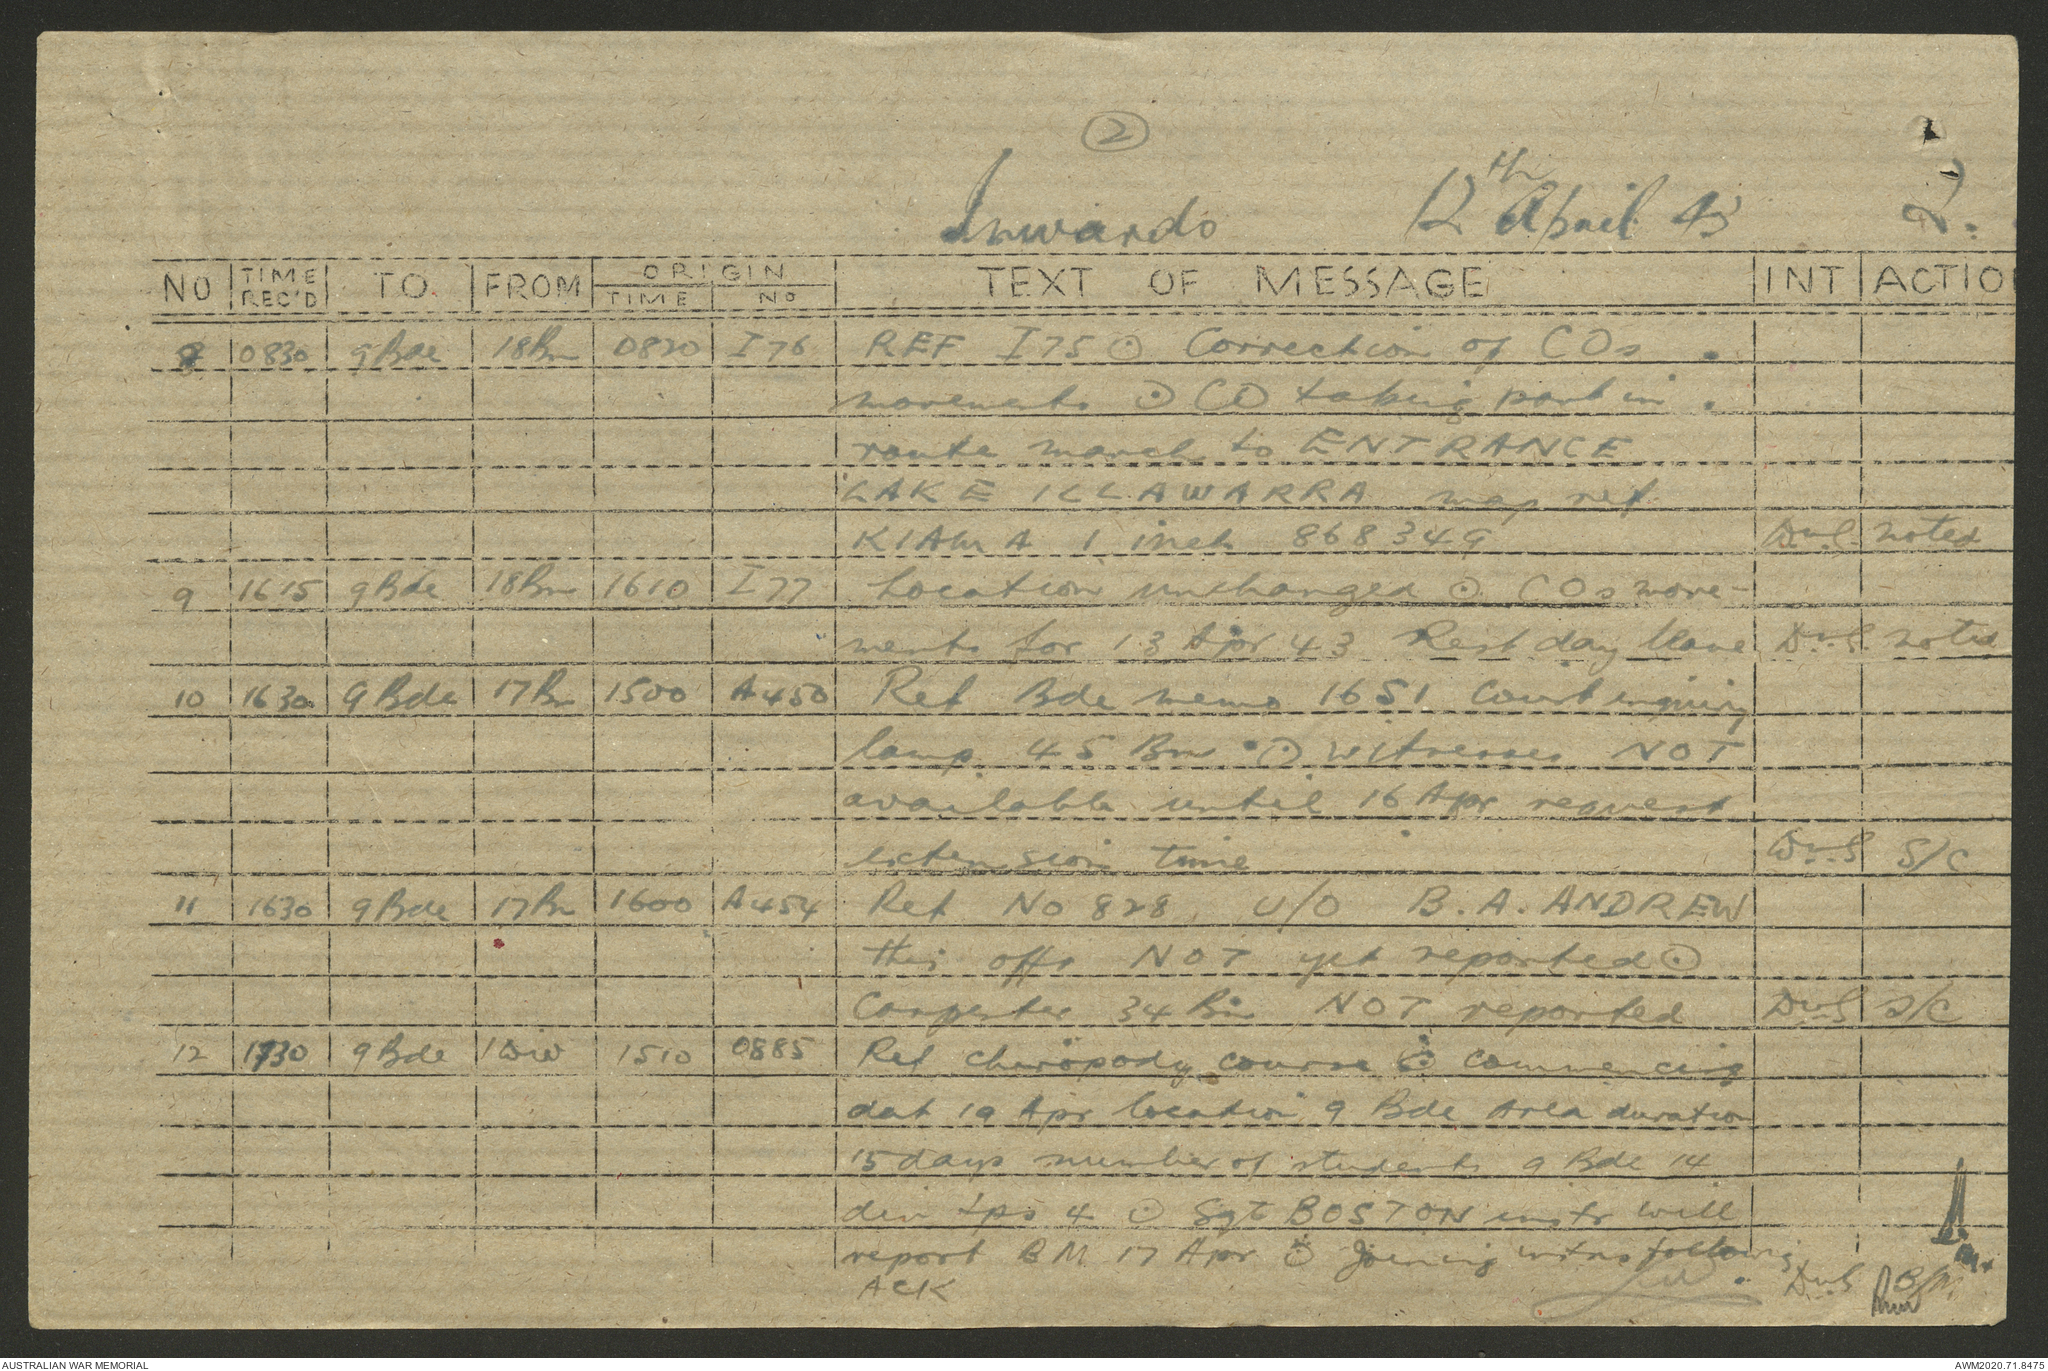 2
Inwards 12th April 43 2.
NO TIME REC'D TO FROM ORIGIN TIME NO TEXT OF MESSAGE INT ACTIO
8 0830 9 Bde 18 Bn 0820 I 76 REF I 75 ⊙ Correction of COs
movements ⊙ CO taking part in
route march to ENTRANCE
LAKE ILLAWARRA map ref
KIAMA 1 inch 868349 DvS noted
9 1615 9 Bde 18 Bn 1610 I 77 Location unchanged ⊙ COs move-
ments for 13 Apr 43 Rest day leave DvS noted
10 1630 9 Bde 17 Bn 1500 A450 Ref Bde memo 1651 Court inquiry
lamp 45 Bn ⊙ witnesses NOT
available until 16 Apr request
extension time DvS S/C
11 1630 9 Bde 17 Bn 1600 A454 Ref No 828 U/O B. A. ANDREW
this offr NOT yet reported ⊙
Carpenter 34 Bn NOT reported DvS S/C
12 1730 9 Bde 1 Div 1510 0885 Ref chiropody course ⊙ commencing
dat 19 Apr location 9 Bde Area duration
15 days number of students 9 Bde 14
div tps 4 ⊙ Sgt BOSTON instr will
report BM 17 Apr ⊙ Joining instns following
ACK DvS B/M
AUSTRALIAN WAR MEMORIAL AWM2020.71.8475